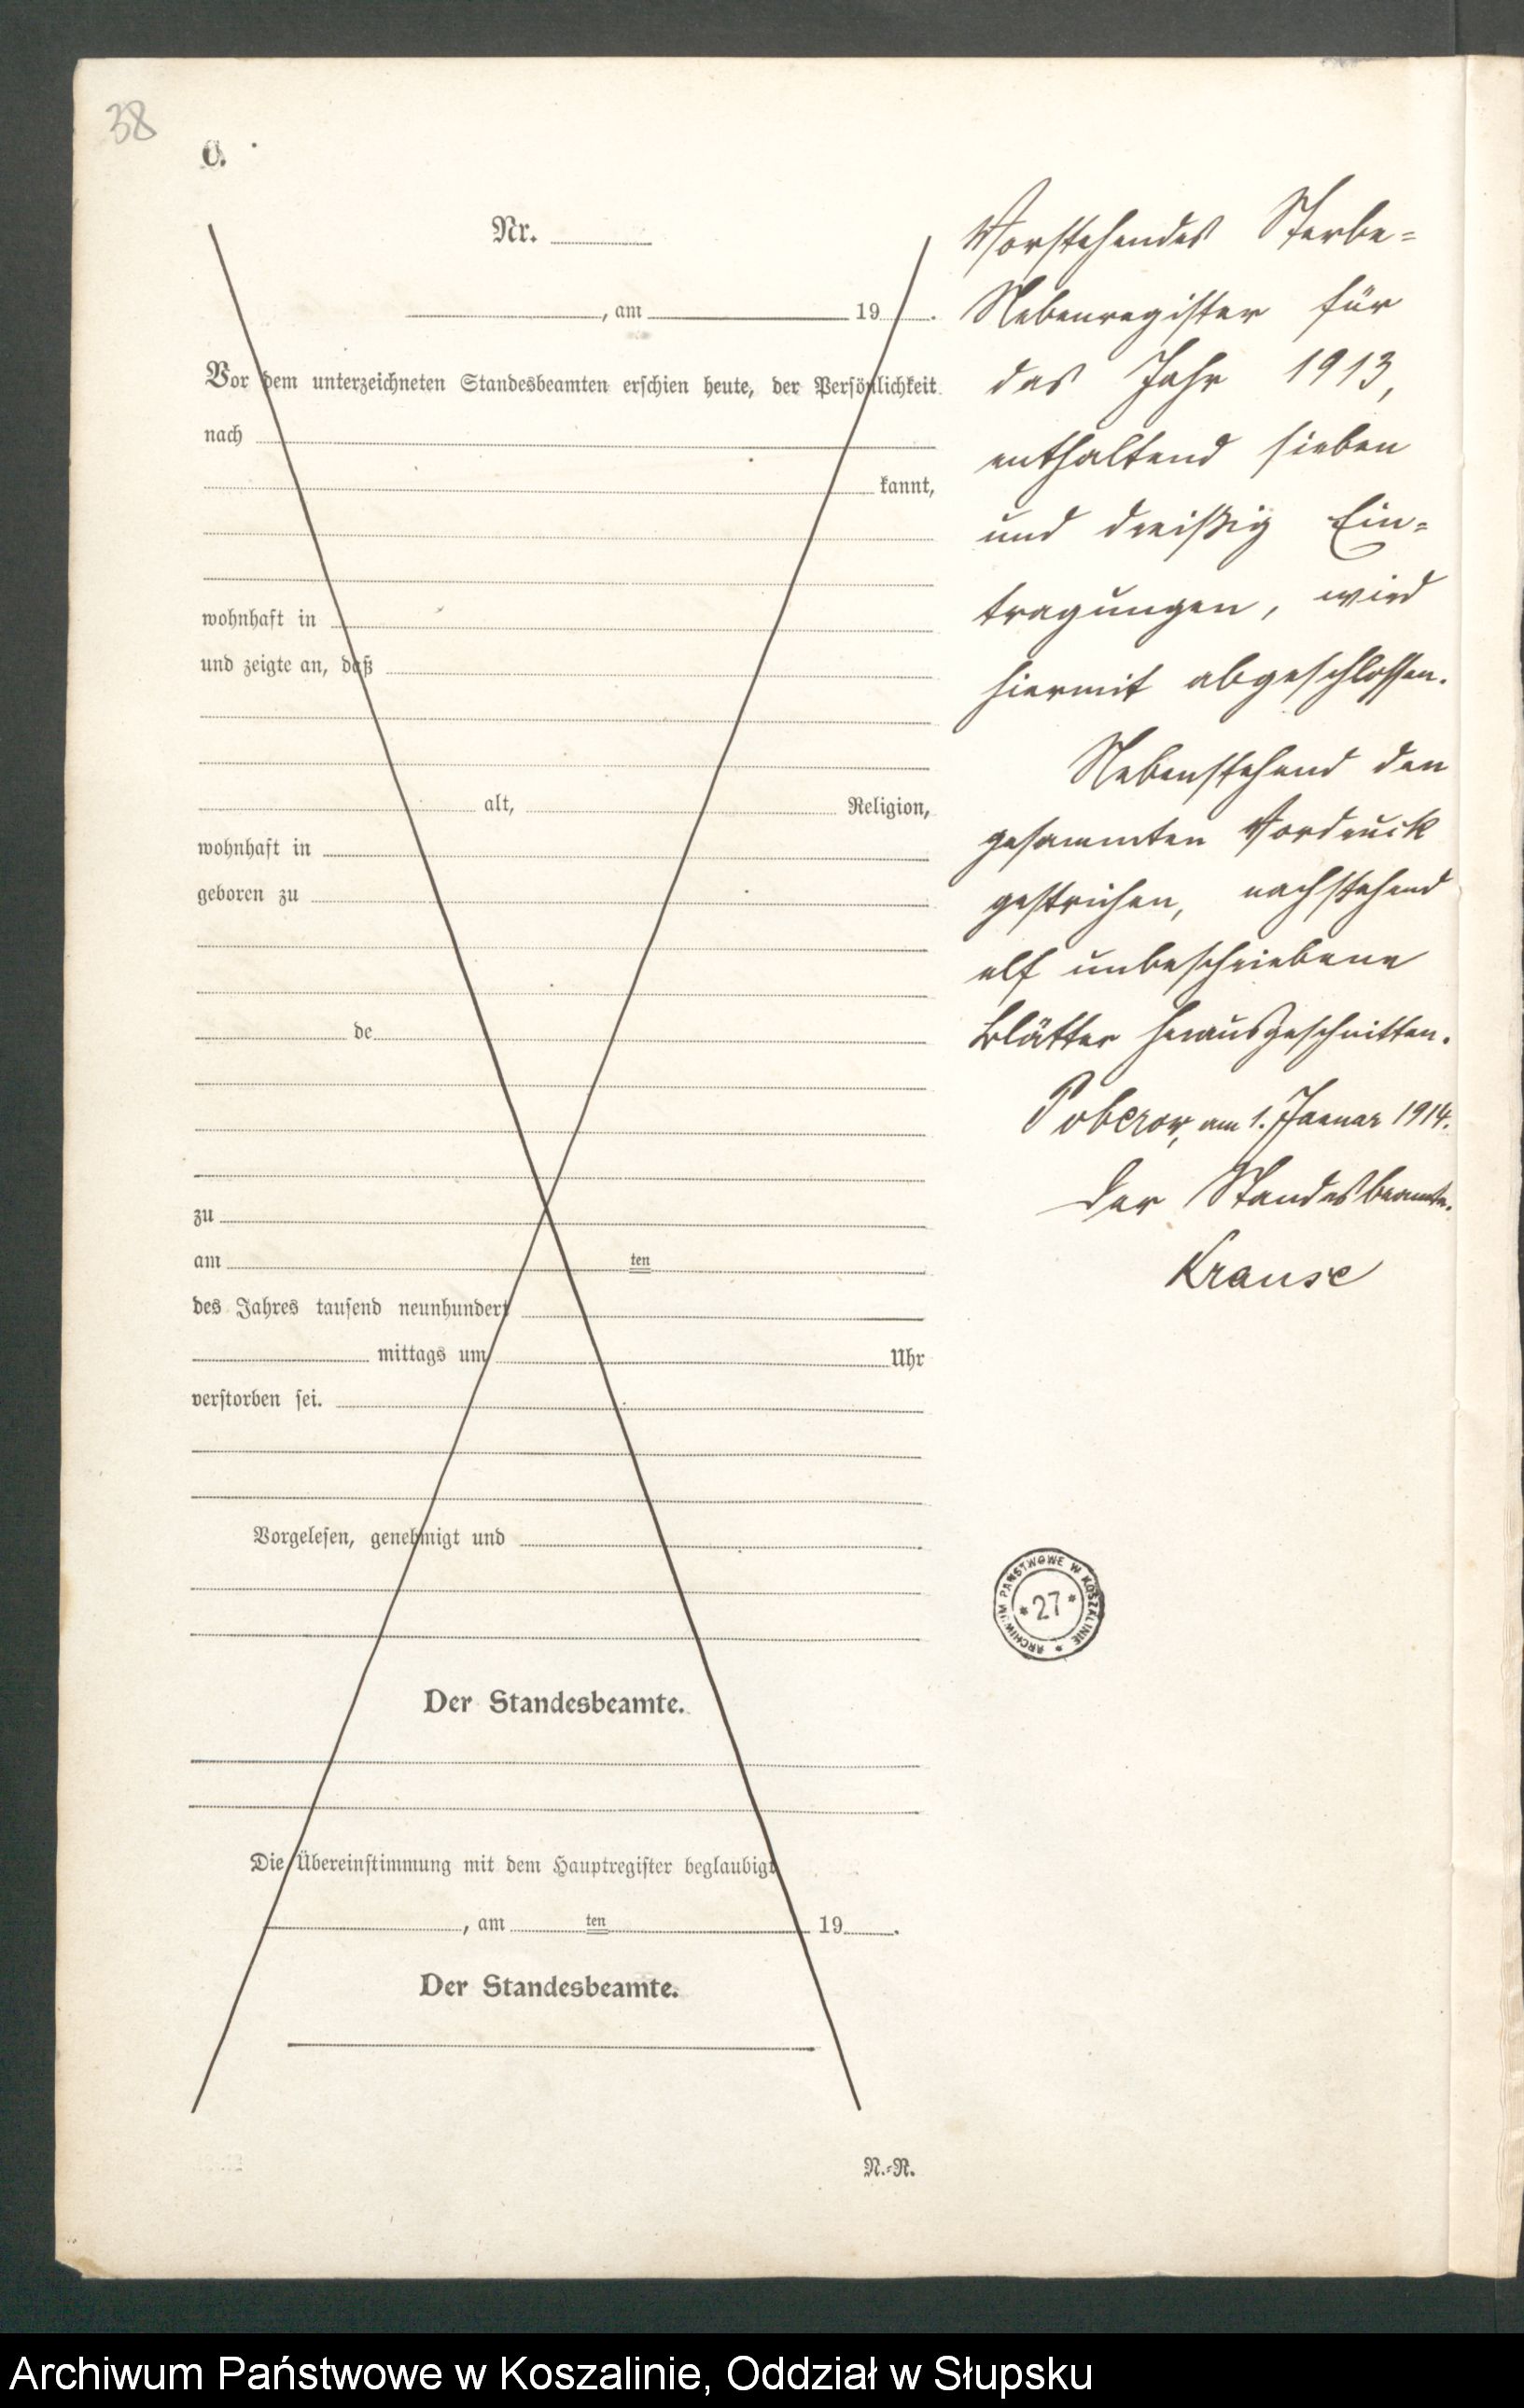 38
C.
Nr.
, am 19 .
Vor dem unterzeichneten Standesbeamten erschien heute, der Persönlichkeit
nach
kannt,
wohnhaft in
und zeigte an, daß
alt, Religion,
wohnhaft in
geboren zu
de
zu
am ten
des Jahres tausend neunhundert
mittags um Uhr
verstorben sei.
Vorgelesen, genehmigt und
Der Standesbeamte.
Die Übereinstimmung mit dem Hauptregister beglaubigt
, am ten 19 .
Der Standesbeamte.
N.-R.
Vorstehendes Sterbe-
Nebenregister für
das Jahr 1913,
enthaltend sieben
und dreißig Ein-
tragungen, wird
hiermit abgeschlossen.
Nebenstehend den
gesammten Vordruck
gestrichen, nachstehend
elf unbeschriebene
Blätter herausgeschnitten.
Poberow, am 1. Januar 1914.
Der Standesbeamte.
Krause
ARCHIWUM PAŃSTWOWE W KOSZALINIE *
* 27 *
Archiwum Państwowe w Koszalinie, Oddział w Słupsku